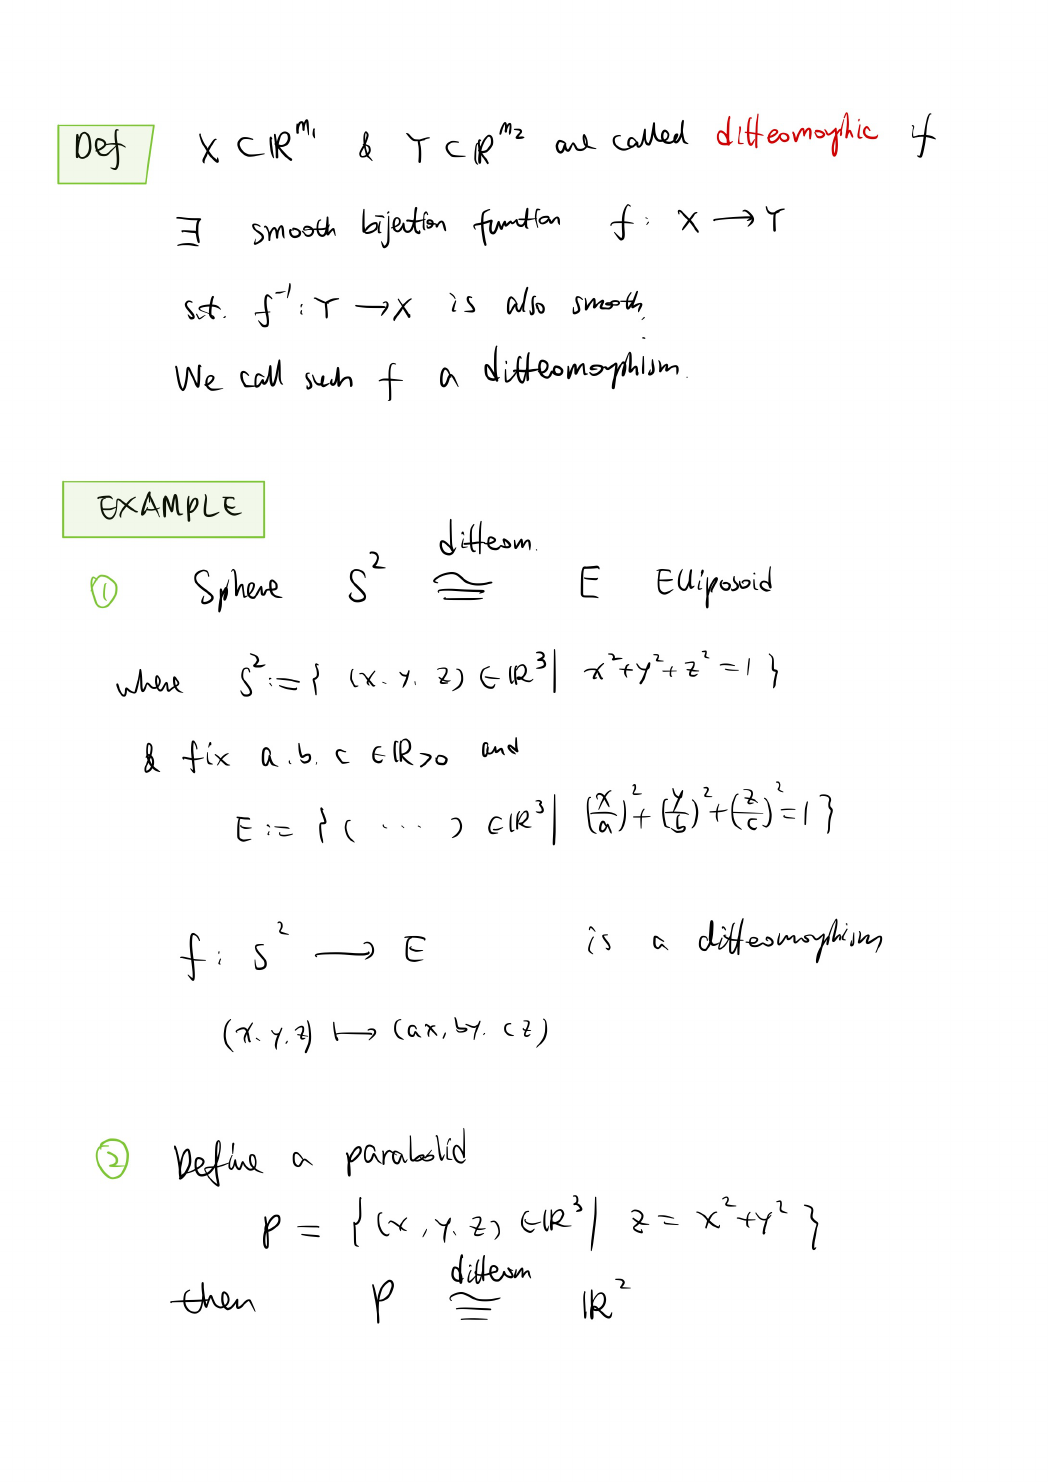 Def X ⊂ ℝ^m₁ & Y ⊂ ℝ^m₂ are called diffeomorphic if
∃ smooth bijection function f: X → Y
s.t. f⁻¹: Y → X is also smooth.
We call such f a diffeomorphism.
EXAMPLE
diffeom.
① Sphere S² ≅ E Elliposoid
where S² := { (x, y, z) ∈ ℝ³ | x² + y² + z² = 1 }
& fix a, b, c ∈ ℝ>0 and
E := { ( ... ) ∈ ℝ³ | (x/a)² + (y/b)² + (z/c)² = 1 }
f: S² → E is a diffeomorphism
(x, y, z) ↦ (ax, by, cz)
② Define a paraboloid
P = { (x, y, z) ∈ ℝ³ | z = x² + y² }
diffeom
then P ≅ ℝ²